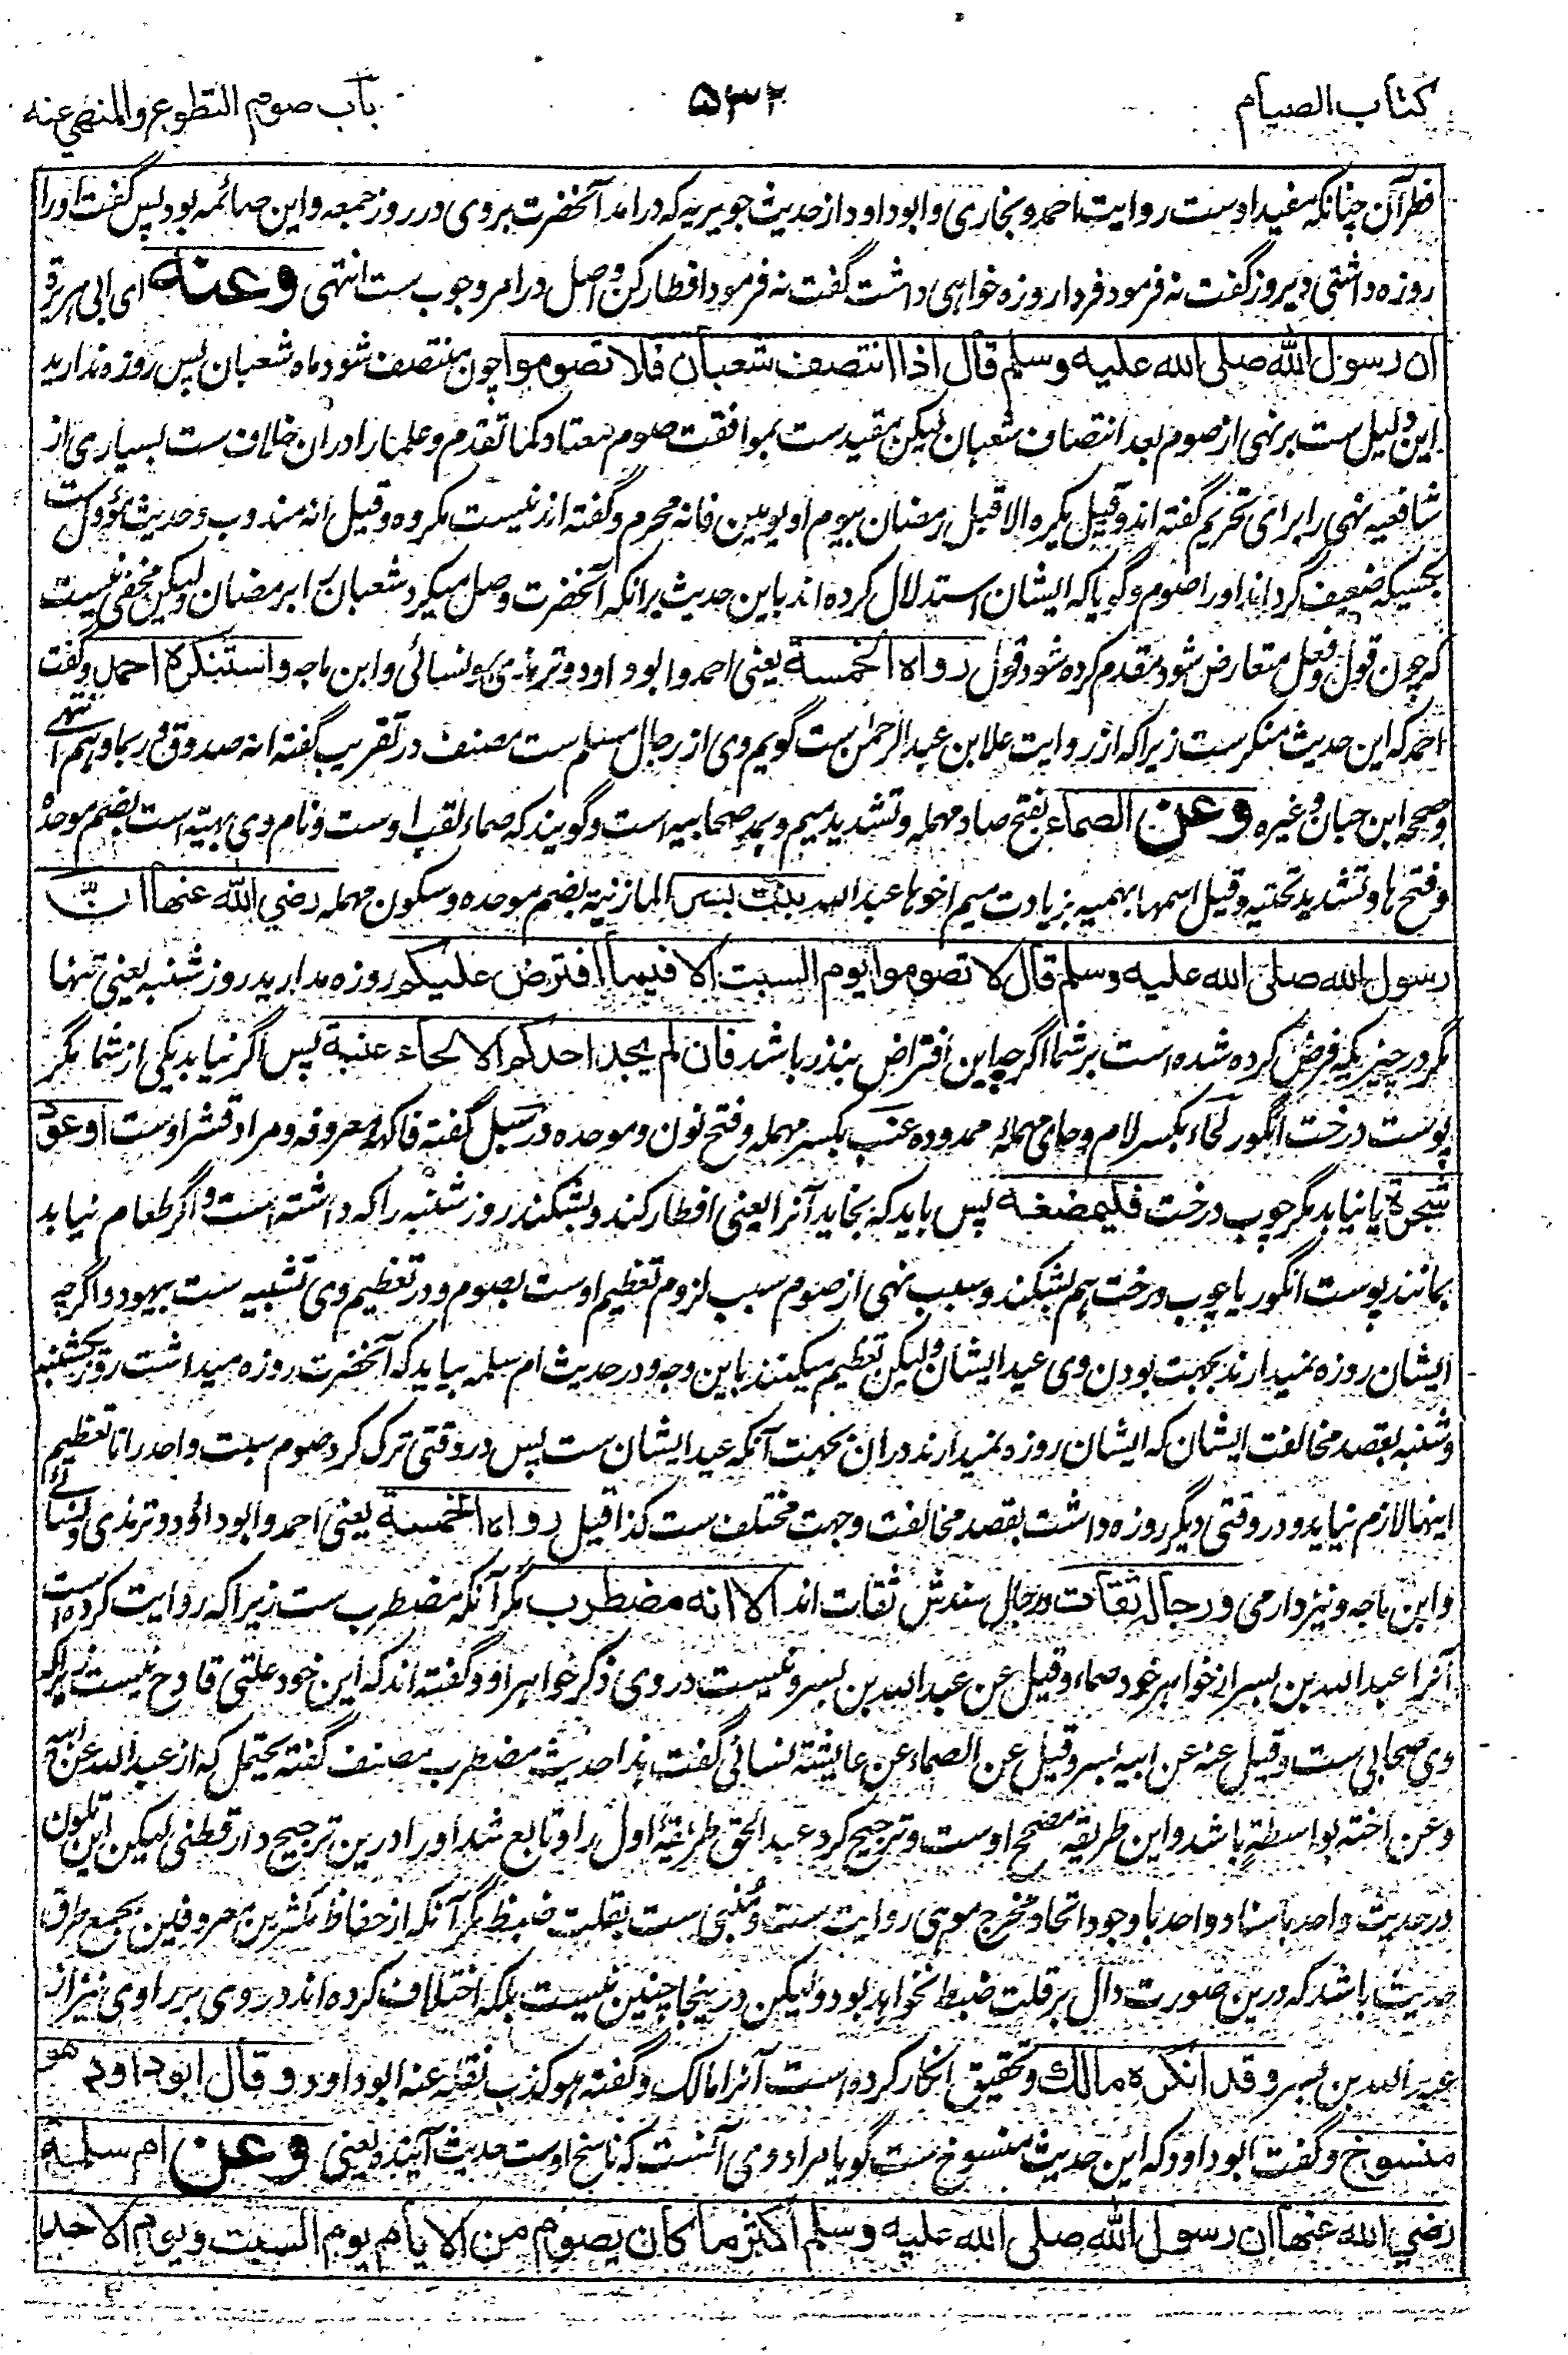 كتاب الصيام
۵۳۲
باب صوم التطوع والمنهي عنه
فطر آن چنانکه مفید اوست روایت احمد و بخاری و ابو داود از حدیث جویریه که درآمد آنحضرت بروی در روز جمعه و این صائمه بود پس گفت اورا
روزه داشتی دیروز گفت نه فرمود فردا روزه خواهی داشت گفت نه فرمود افطار کن و اصل در امر وجوب ست انتهی وعنه ای ابی هریرة
ان رسول الله صلى الله عليه وسلم قال اذا انتصف شعبان فلا تصوموا چون منتصف شود ماه شعبان پس روزه ندارید
این دلیل ست بر نهی از صوم بعد انتصاف شعبان لیکن مقیدست بموافقت صوم معتاد کما تقدم و علما را دران خلاف ست بسیاری از
شافعیه نهی را برای تحریم گفته اند و قیل یکره الا قبل رمضان بیوم او یومین فانه محرم و گفته اند نیست مکروه و قیل انه مندوب و حدیث مؤول ست
بکسیکه ضعیف گرداند اورا صوم و گویا که ایشان استدلال کرده اند باین حدیث برانکه آنحضرت وصل میکرد شعبان را برمضان ولیکن مخفی نیست
که چون قول و فعل متعارض شود مقدم کرده شود قول رواه الخمسة یعنی احمد و ابو داود و ترمذی و نسائی و ابن ماجه واستنكره احمد و گفت
احمد که این حدیث منکرست زیرا که از روایت علا بن عبد الرحمن ست گویم وی از رجال مسلم ست مصنف در تقریب گفته انه صدوق ربما وهم انتهے
وصححه ابن حبان وغیره وعن الصماء بفتح صاد مهمله و تشدید میم و بمد صحابیه است و گویند که صماء لقب اوست و نام وی بهیّه است بضم موحده
و فتح ها و تشدید تحتیه و قیل اسمها بهیمیه بزیادت میم اخوها عبد الله بنت بسر المازنیة بضم موحده و سکون مهمله رضي الله عنها انّ
رسول الله صلى الله عليه وسلم قال لا تصوموا يوم السبت الا فيما افترض عليكم روزه مدارید روز شنبه یعنی تنها
مگر در چیزیکه فرض کرده شده است بر شما اگرچه این افتراض بنذر باشد فان لم يجد احدكم الا لحاء عنبة پس اگر نیابد یکی از شما مگر
پوست درخت انگور لحاء بکسر لام و حای مهمله ممدوده عنب بکسر مهمله و فتح نون و موحده در سبل گفته فاکهه معروفه و مراد قشر اوست او عود
شجرة یا نیابد مگر چوب درخت فليمضغه پس باید که بخاید آنرا یعنی افطار کند و بشکند روز شنبه را که داشته است و اگر طعام نیابد
بمانند پوست انگور یا چوب درخت هم بشکند و سبب نهی از صوم سبب لزوم تعظیم اوست بصوم و در تعظیم وی تشبیه ست بیهود و اگرچه
ایشان روزه نمیدارند بجهت بودن وی عید ایشان ولیکن تعظیم میکنند باین وجه و در حدیث ام سلمه بیاید که آنحضرت روزه میداشت روز یکشنبه
و شنبه بقصد مخالفت ایشان که ایشان روزه نمیدارند دران بجهت آنکه عید ایشان ست پس در وقتی ترک کرد صوم سبت واحد را تا تعظیم
اینها لازم نیاید و در وقتی دیگر روزه داشت بقصد مخالفت و جهت مختلف ست کذا قیل رواه الخمسة یعنی احمد و ابو داود و ترمذی و نسائے
و ابن ماجه و نیز دارمی ورجاله ثقات و رجال سندش ثقات اند الا انه مضطرب مگر آنکه مضطرب ست زیرا که روایت کرده است
آنرا عبد الله بن بسر از خواهر خود صماء و قیل عن عبد الله بن بسر و نیست در وی ذکر خواهر او و گفته اند که این خود علتی قادح نیست زیراکه
وی صحابی ست و قیل عنه عن ابیه بسر و قیل عن الصماء عن عایشة نسائی گفت هذا حدیث مضطرب مصنف گفته یحتمل که از عبد الله عن ابیه
و عن اخته بواسطه باشد و این طریقه مصحح اوست و ترجیح کرد عبد الحق طریقهٔ اول را و تابع شد اورا درین ترجیح دارقطنی لیکن این تلون
در حدیث واحد باسناد واحد با وجود اتحاد مخرج موهی روایت ست و منبی ست بقلت ضبط مگر آنکه از حفاظ مکثرین معروفین بجمع طرق
حدیث باشد که درین صورت دال بر قلت ضبط نخواهد بود ولیکن درینجا چنین نیست بلکه اختلاف کرده اند در وی بر راوی نیز از
عبد الله بن بسر وقد انكره مالك و تحقیق انکار کرده است آنرا مالک و گفته هو کذب نقله عنه ابو داود وقال ابو داود هو
منسوخ و گفت ابو داود که این حدیث منسوخ ست گویا مراد وی آنست که ناسخ اوست حدیث آینده یعنی وعن ام سلمة
رضي الله عنها ان رسول الله صلى الله عليه وسلم اكثر ما كان يصوم من الايام يوم السبت ويوم الاحد